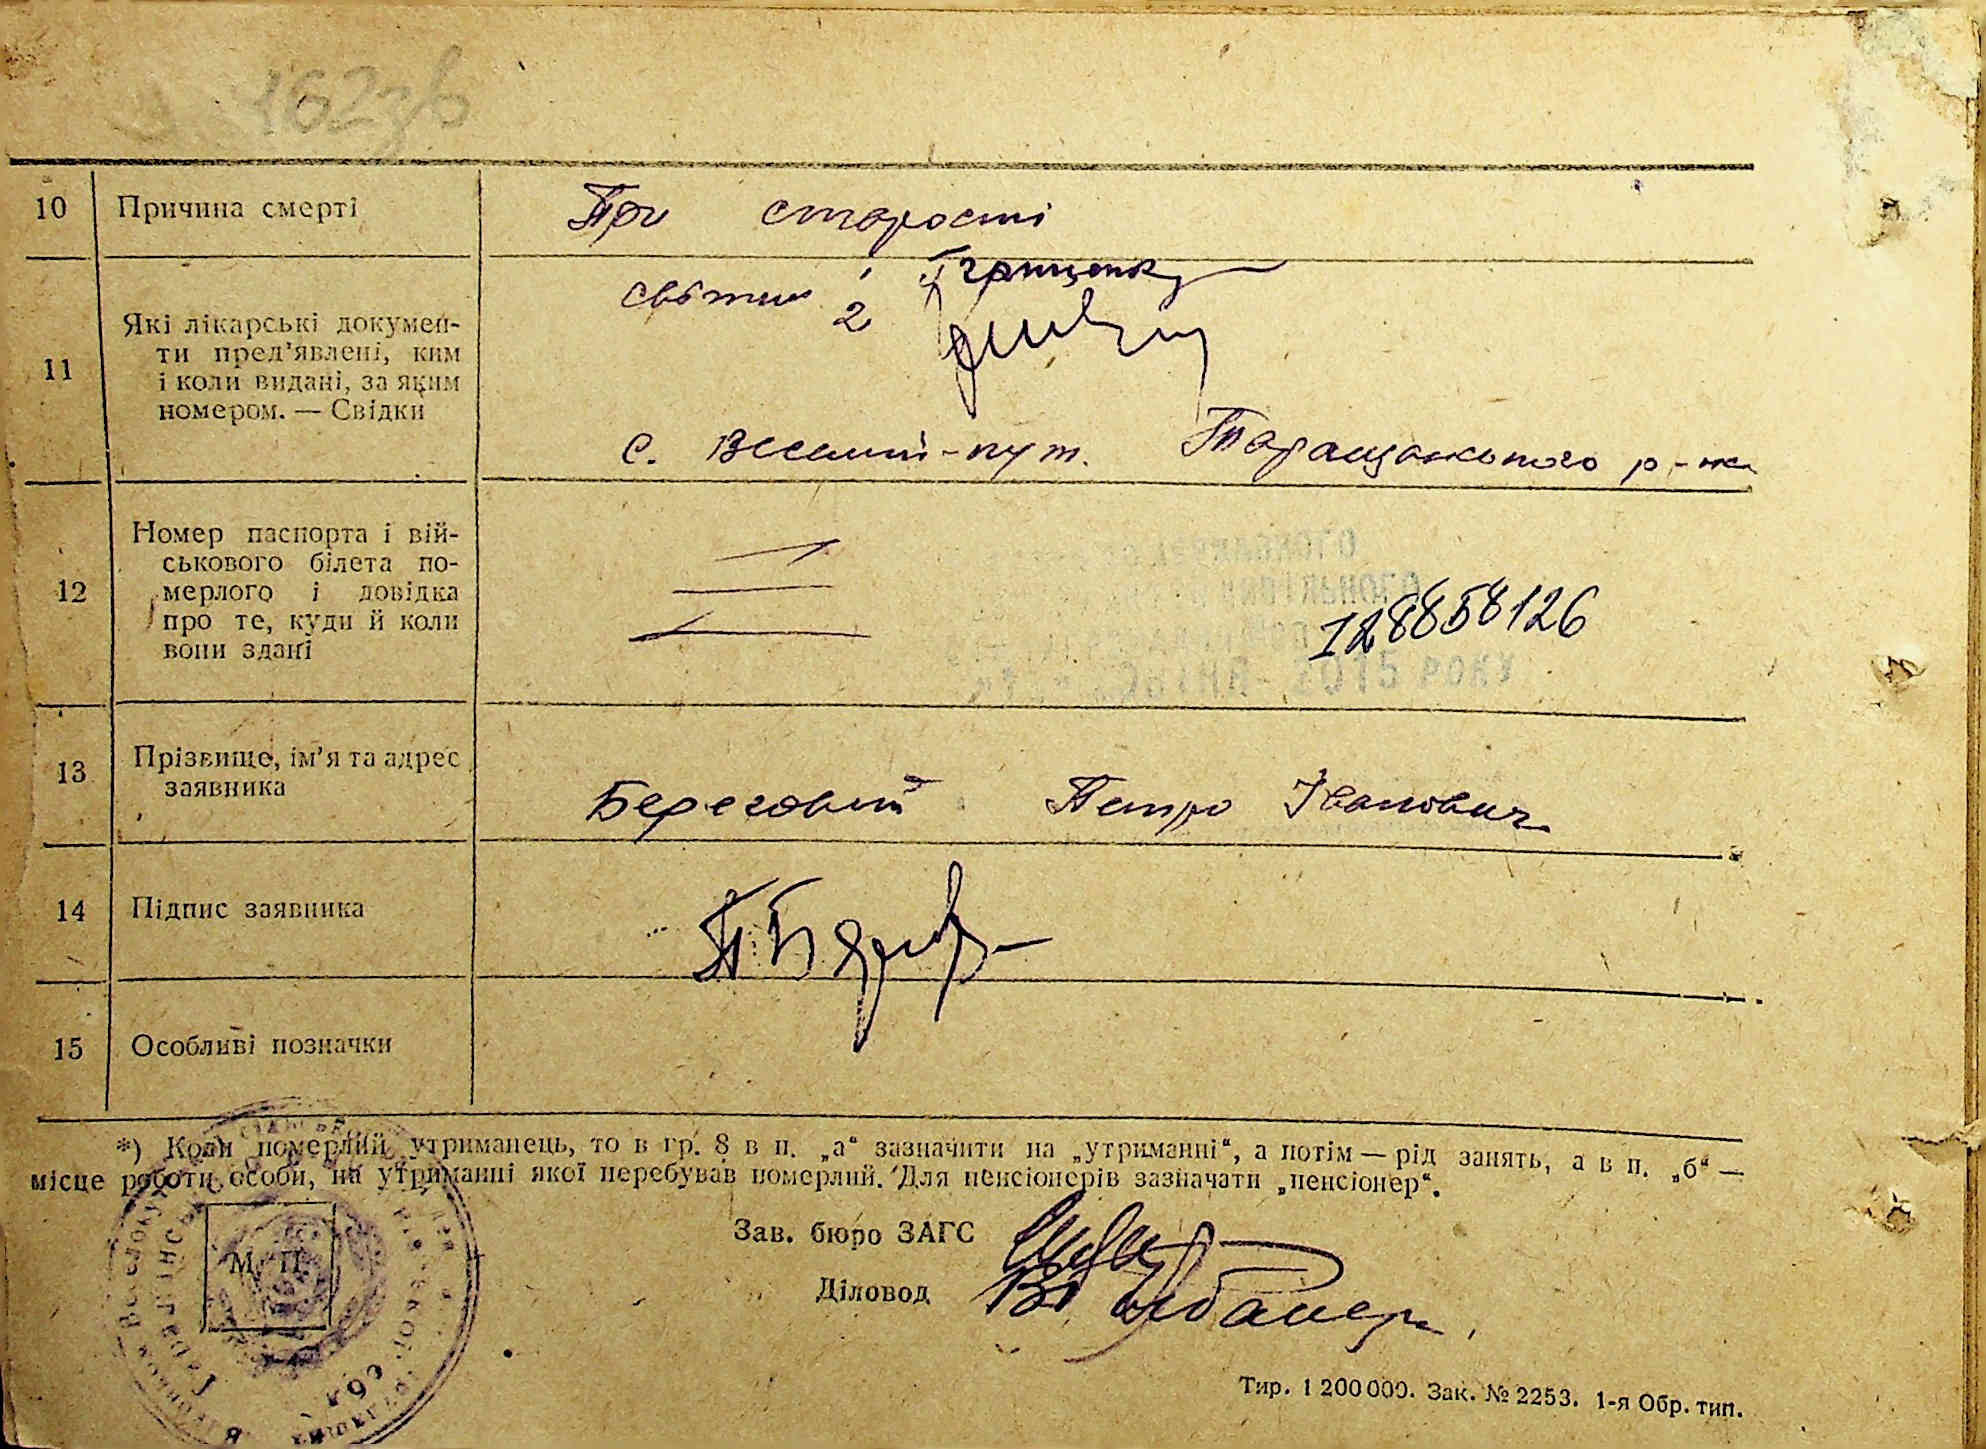 162зв
10 Причина смерті При старості
11 Які лікарські докумен-
ти пред'явлені, ким
і коли видані, за яким
номером. — Свідки
1 Грищенко
2
с. Веселий-кут. Таращанського р-на
12 Номер паспорта і вій-
ськового білета по-
мерлого і довідка
про те, куди й коли
вони здані
128858126
2015 РОКУ
13 Прізвище, ім'я та адрес
заявника
Береговий Петро Іванович
14 Підпис заявника
15 Особливі позначки
*) Коли померлий утриманець, то в гр. 8 в п. „а“ зазначити на „утриманні“, а потім — рід занять, а в п. „б“ —
місце роботи особи, на утриманні якої перебував померлий. Для пенсіонерів зазначати „пенсіонер“.
Зав. бюро ЗАГС
Діловод
М. П.
Тир. 1 200 000. Зак. № 2253. 1-я Обр. тип.